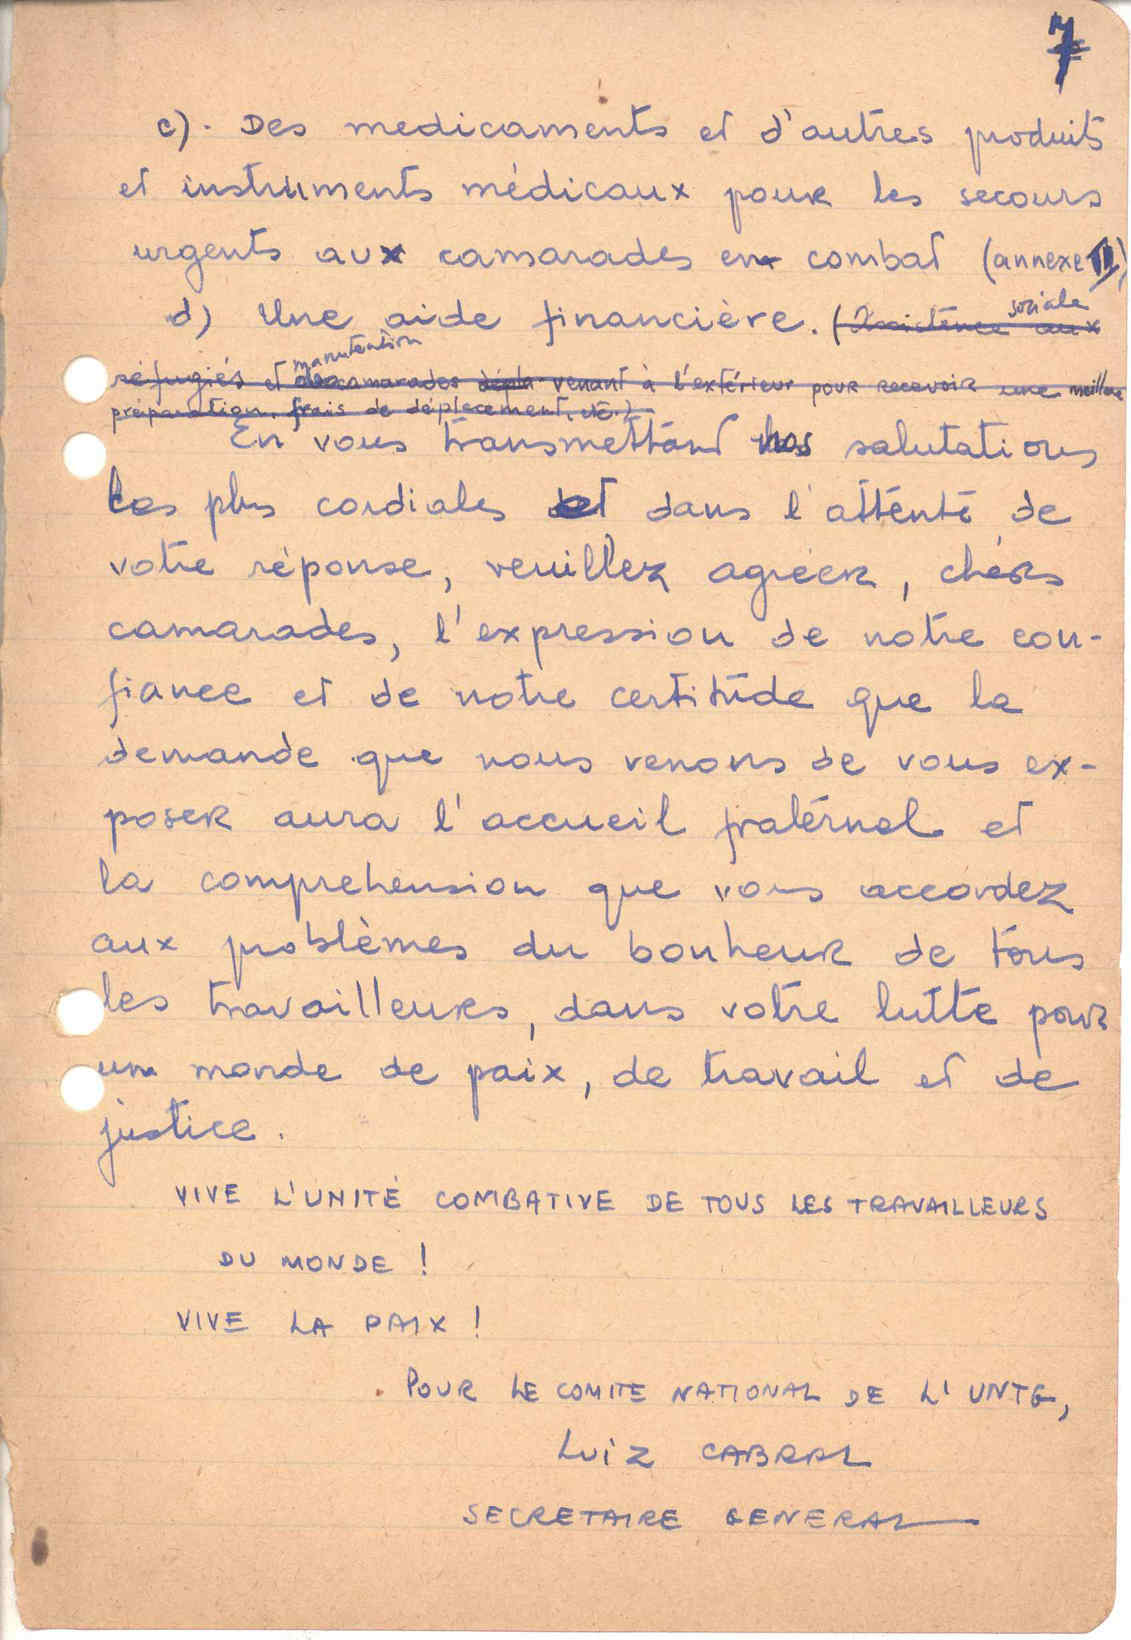 7
c). Des medicaments et d'autres produits
et instruments médicaux pour les secours
urgents aux camarades en combat (annexe III)
d) Une aide financière. (Assistence sociale aux
réfugiés et manutention des camarades dépla venant à l'extérieur pour recevoir une meilleure
préparation, frais de déplacement, etc.)
En vous transmettant nos salutations
les plus cordiales et dans l'attente de
votre réponse, veuillez agréer, chers
camarades, l'expression de notre con-
fiance et de notre certitude que la
demande que nous venons de vous ex-
poser aura l'accueil fraternel et
la comprehension que vous accordez
aux problèmes du bonheur de tous
les travailleurs, dans votre lutte pour
un monde de paix, de travail et de
justice.
VIVE L'UNITÉ COMBATIVE DE TOUS LES TRAVAILLEURS
DU MONDE !
VIVE LA PAIX !
POUR LE COMITE NATIONAL DE L'UNTG,
LUIZ CABRAL
SECRETAIRE GENERAL